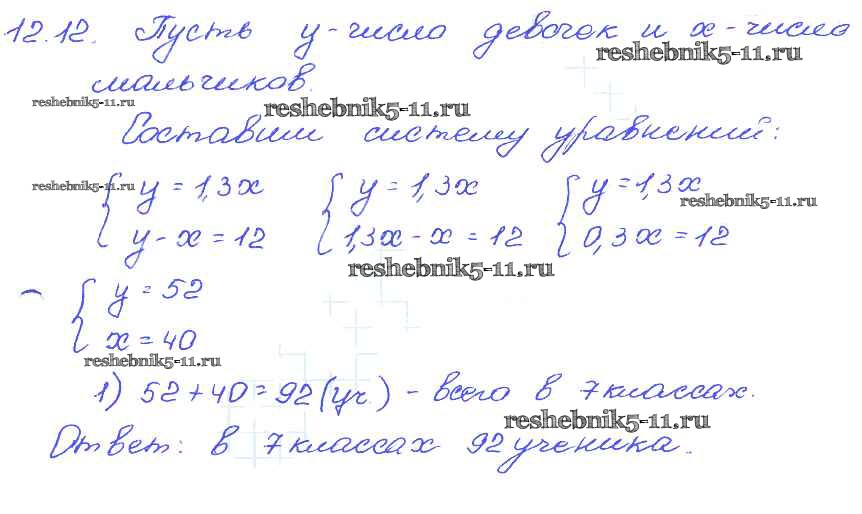 12.12. Пусть y - число девочек и x - число
reshebnik5-11.ru
мальчиков.
reshebnik5-11.ru
reshebnik5-11.ru
Составим систему уравнений:
reshebnik5-11.ru
{ y = 1,3x { y = 1,3x { y = 1,3x
reshebnik5-11.ru
y - x = 12 1,3x - x = 12 0,3x = 12
reshebnik5-11.ru
{ y = 52
x = 40
reshebnik5-11.ru
1) 52 + 40 = 92 (уч.) - всего в 7 классах.
reshebnik5-11.ru
Ответ: в 7 классах 92 ученика.